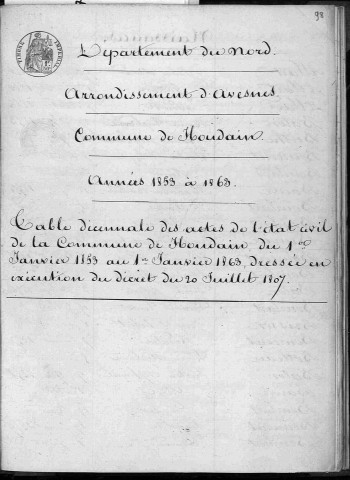 98
TIMBRE IMPERIAL
Département du Nord.
Arrondissement d'Avesnes.
Commune de Houdain.
Années 1853 à 1863.
Table décennale des actes de l'état civil
de la Commune de Houdain du 1er
Janvier 1853 au 1er Janvier 1863, dressée en
exécution du décret du 20 Juillet 1807.